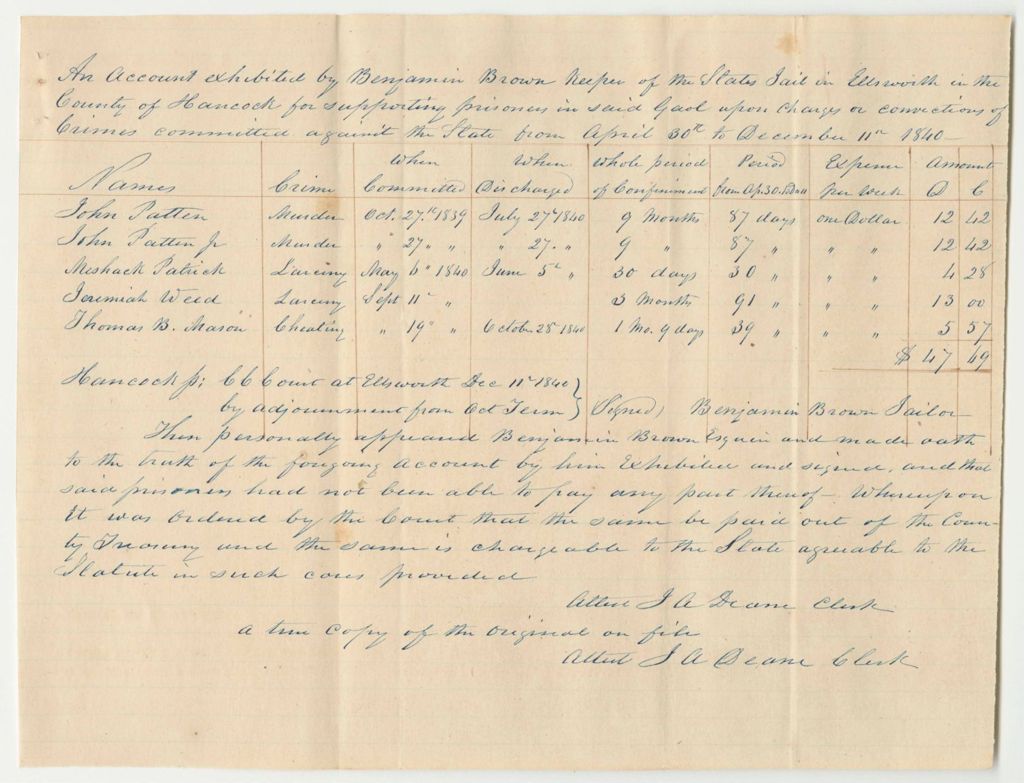 An Account exhibited by Benjamin Brown Keeper of the States Jail in Ellsworth in the
County of Hancock for supporting prisoners in said Gaol upon charges or convictions of
Crimes committed against the State from April 30th to December 11th 1840
Names Crime When Committed When Discharged Whole period of Confinement Period from Ap. 30. Expense Per Week Amount D C
John Patten Murder Oct. 27th 1839 July 27th 1840 9 Months 87 days one Dollar 12 42
John Patten Jr Murder " 27 " " " 27. " 9 " 87 " " " 12 42
Meshack Patrick Larceny May 6th 1840 June 5th " 30 days 30 " " " 4 28
Jeremiah Weed Larceny Sept 11th " 3 Months 91 " " " 13 00
Thomas B. Mason Cheating " 19th " October 28th 1840 1 Mo. 9 days 39 " " " 5 57
$ 47 69
Hancock ss: CC Court at Ellsworth Dec 11th 1840 }
by adjournment from Oct Term } (Signed) Benjamin Brown Jailor
Then personally appeared Benjamin Brown Esquire and made oath
to the truth of the foregoing account by him Exhibited and signed, and that
said prisoners had not been able to pay any part thereof - Whereupon
It was Ordered by the Court that the same be paid out of the Coun-
ty Treasury and the same is chargeable to the State agreeable to the
Statute in such cases provided
Attest J A Deane Clerk
a true copy of the original on file
Attest J A Deane Clerk